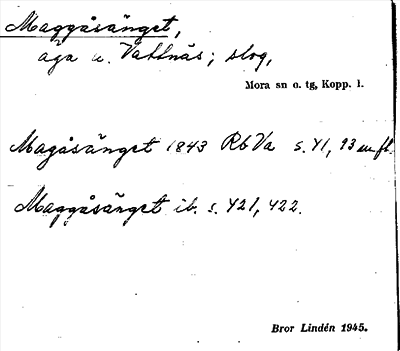 Maggåsänget,
äga u. Vattnäs; slog,
Mora sn o. tg, Kopp. l.
Magåsänget 1843 Rb Va s. 41, 93 m fl.
Maggåsänget ib. s. 421, 422.
Bror Lindén 1945.